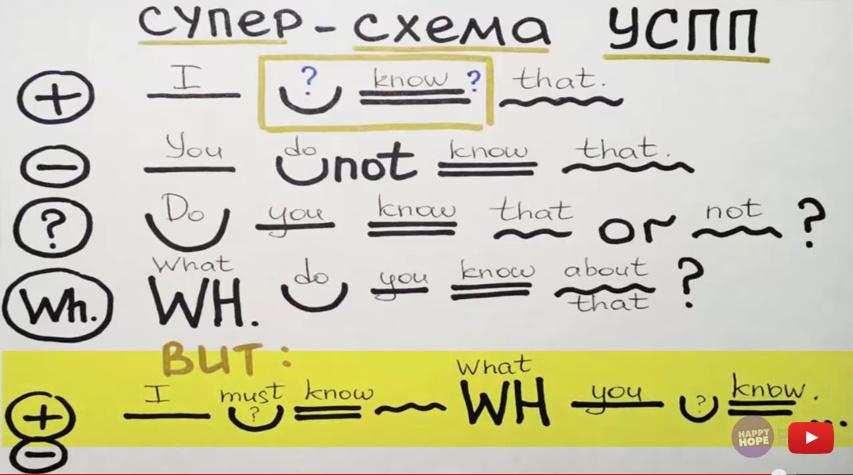 СУПЕР-СХЕМА УСПП
+ I ? know ? that.
− You do not know that.
? Do you know that or not ?
Wh. What WH. do you know about that ?
BUT:
+ − I must ? know What WH you ? know. ...
HAPPY HOPE